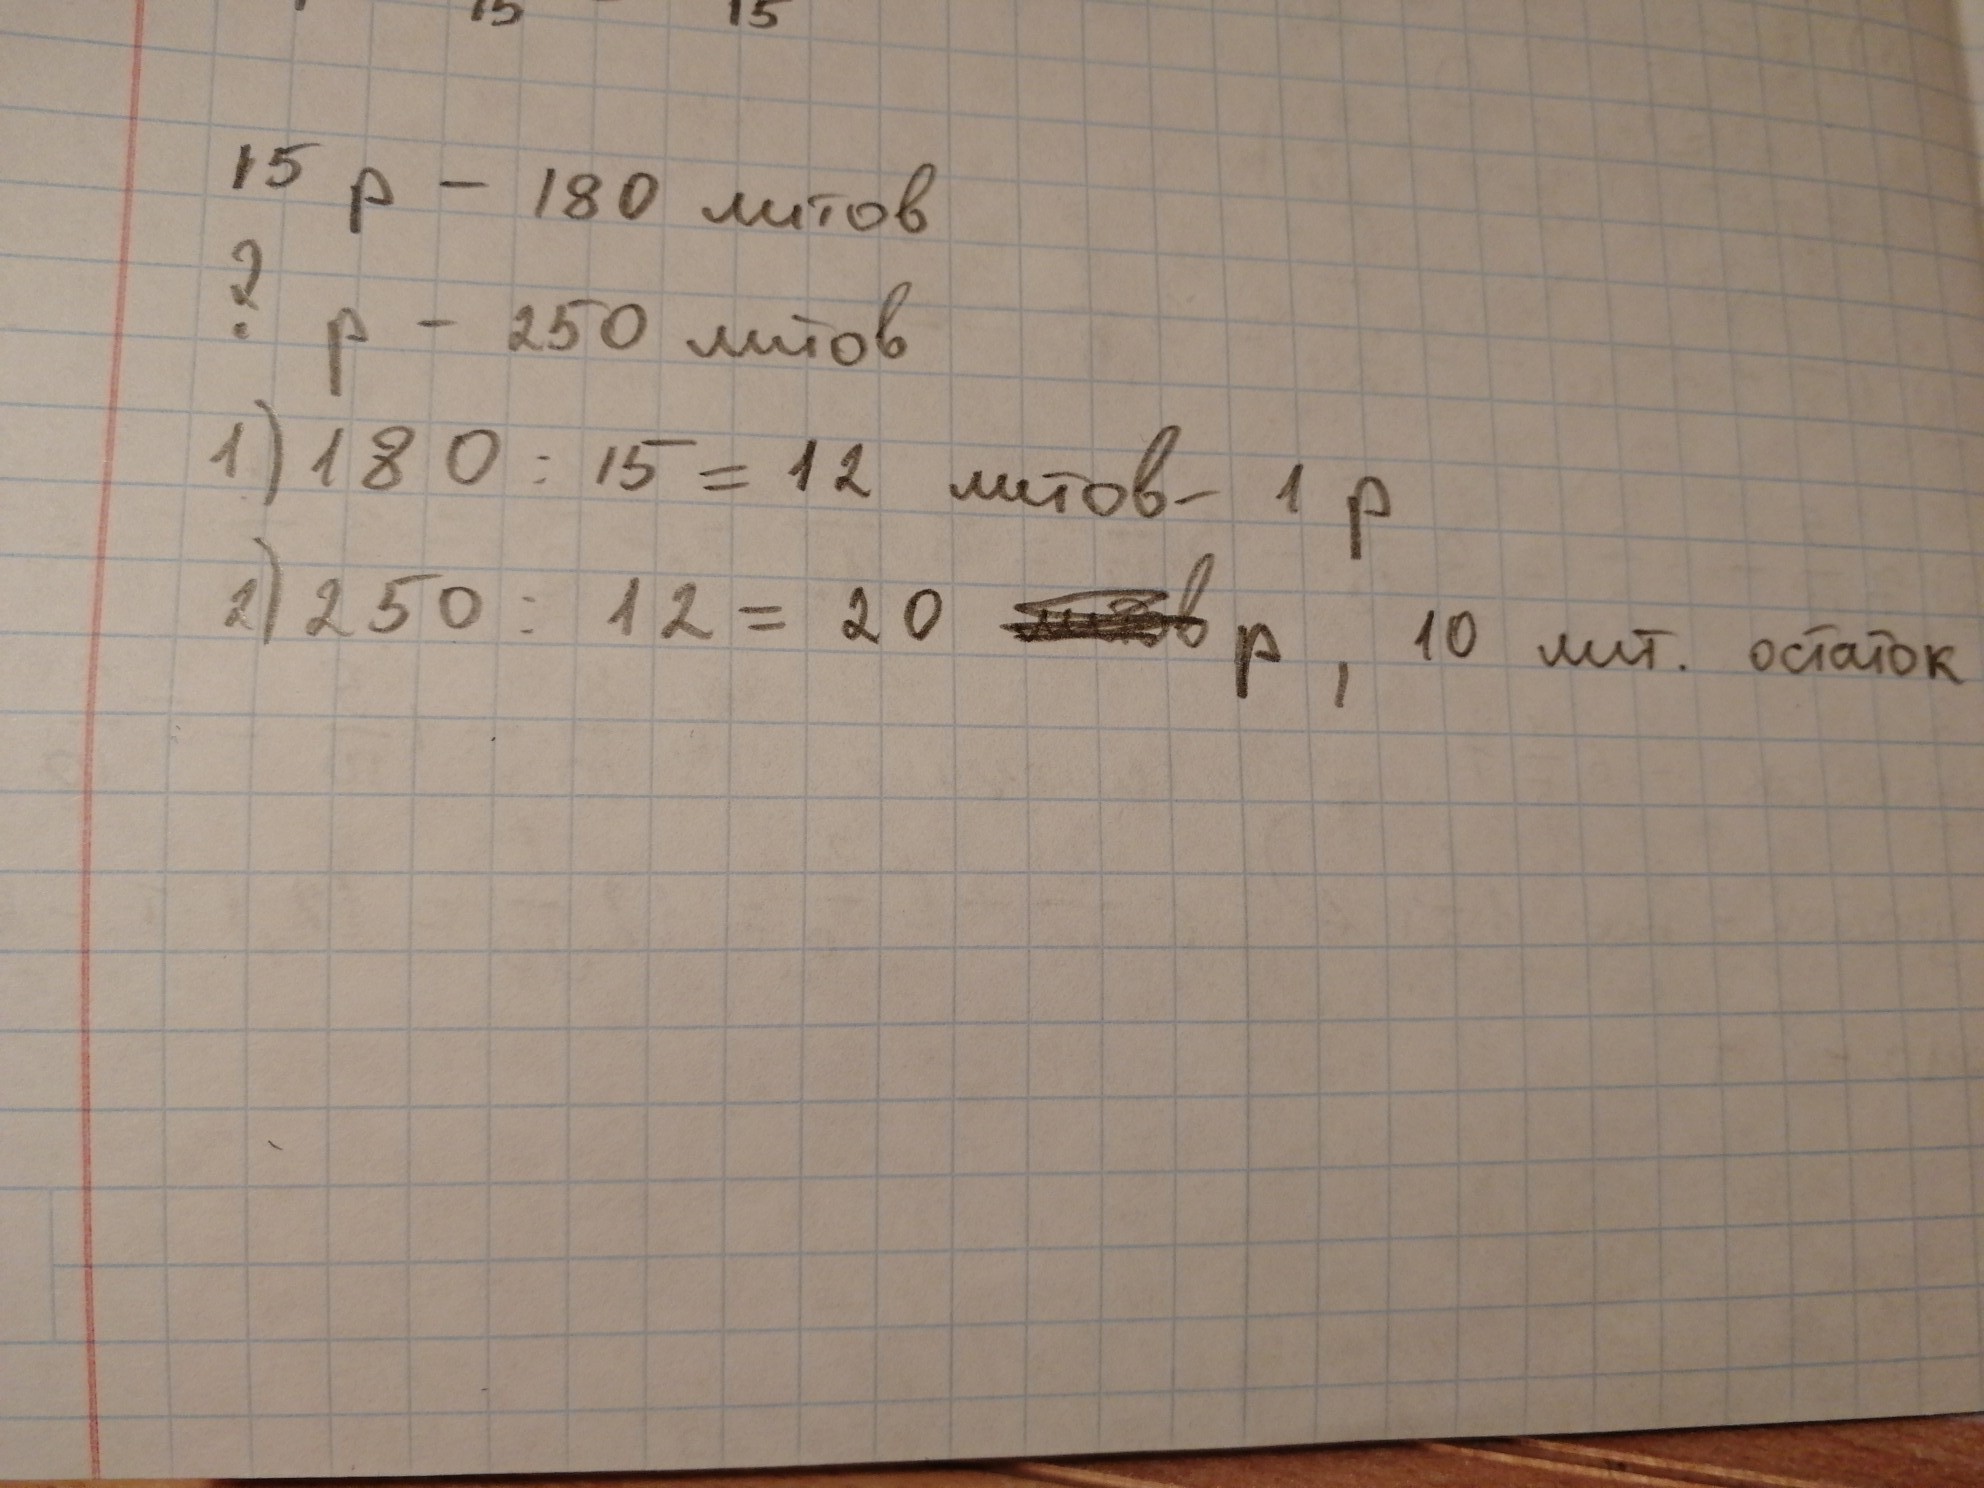 15 15
15 р - 180 литов
? р - 250 литов
1) 180 : 15 = 12 литов - 1 р
2) 250 : 12 = 20 р, 10 лит. остаток